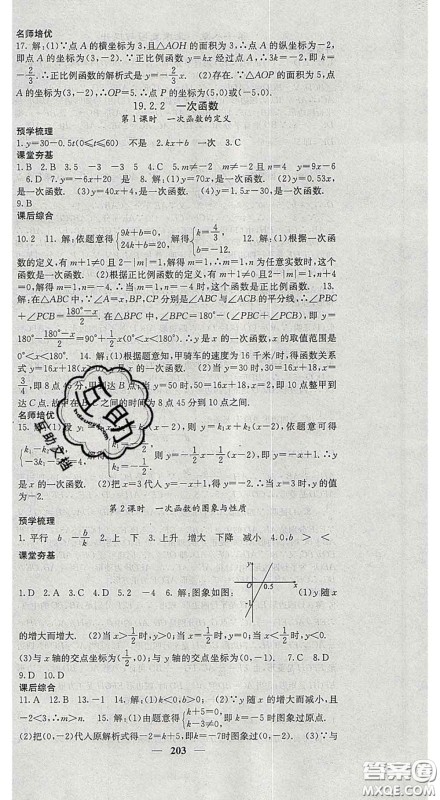 名师培优
17. 解:(1)∵点 A 的横坐标为 3,且△AOH 的面积为 3,∴点 A 的纵坐标为-2,
即点 A 的坐标为(3,-2). ∵正比例函数 y=kx 经过点 A,∴3k=-2,即 k=
-2/3. ∴正比例函数的解析式是 y=-2/3x. (2)存在. ∵△AOP 的面积为 5,点 A
的坐标为(3,-2),∴OP=5. ∴点 P 的坐标为(5,0)或(-5,0).
19.2.2 一次函数
第 1 课时 一次函数的定义
预学梳理
1. y=30-0.5t(0≤t≤60) 不是 2. kx+b 一次 3. C
课堂夯基
1. B 2. B 3. 5 -3 -3 5 4. m≠-2 m≠-2 且 n=4 5. y=9x-6
6. D 7. y=-6x+20 是 8. 解:(1)y=70x,是一次函数. (2)y=0.53x,
是一次函数. (3)y=40x,是一次函数.
9. B
课后综合
10. 2 11. 解:依题意得{9k+b=0, 24k+b=20, 解得{k=4/3, b=-12. 12. 解:(1)根据一次函
数的定义,有 m+1≠0 且 2-|m|=1,解得 m=1. ∴m=1,n 为任意实数时,这个
函数是一次函数. (2)根据正比例函数的定义,有 m+1≠0 且 2-|m|=1,n+4
=0,解得 m=1,n=-4. ∴m=1,n=-4 时,这个函数是正比例函数. 13.
解:在△ABC 中,∵∠A=x,BP,CP 分别是∠ABC 与∠ACB 的平分线,∴∠PBC
+∠PCB=(180°-x)/2. 在△PBC 中,∵∠BPC=y,∴y=180°-(∠PBC+∠PCB)
=180°-(180°-x)/2=x/2+90°. ∴y 是 x 的一次函数,x 的取值范围是
0°<x<180°. 14. 解:(1)根据题意知,甲骑车的速度为 16 千米/时,得函数关系
式为 y=16x+18,是一次函数. (2)当 y=30 时,有 30=16x+18,解得 x=
3/4,即 8 点 45 分,甲到达 B 点;当 y=50 时,有 50=16x+18,即 10 点整甲到
达 C 点. 故中途在 8 点 45 分到 10 点之间.
名师培优
y 是 x 的一次函数. (2)把 x=3 代入 y=-x+1,得 y=-2,∴当 x=3 时,y 的值
为-2.
第 2 课时 一次函数的图象与性质
预学梳理
1. 平行 b -b/k 2. 上 下 3. 上升 增大 下降 减小 4. 0,b > <
课堂夯基
1. D 2. A 3. C 4. D 5. 2 -4 6. 解:图象如图: (1)y 随 x
y x O 0.5 -1
的增大而增大. (2)当 x>1/2时,y>0;当 x=1/2时,y=0;当 x<1/2时,y<0.
(3)与 x 轴的交点坐标为(1/2,0),与 y 轴的交点坐标为(0,-1). 7. C 8. D
9. D 10. D
课后综合
11. A 12. A 13. -1 14. 减小 15. 解:(1)a=2. (2)∵y 随 x 的增大而减小,且
-2<3,∴m>n. 15. 解:(1)由题意得{k-6=0, k+3≠0, ∴k=6 时图象过原点.
(2)把(0,-10)代入原函数解析式得 k=-7,∴k=-7 时图象过该点. (3)∵与
203
互助
互助文档
答案圈
MXQE.COM